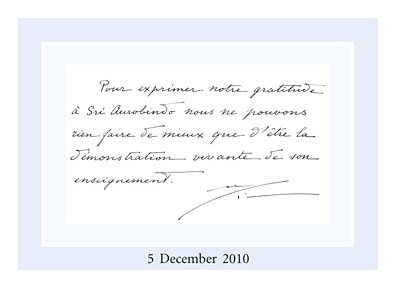 Pour exprimer notre gratitude
à Sri Aurobindo nous ne pouvons
rien faire de mieux que d'être la
démonstration vivante de son
enseignement.
5 December 2010